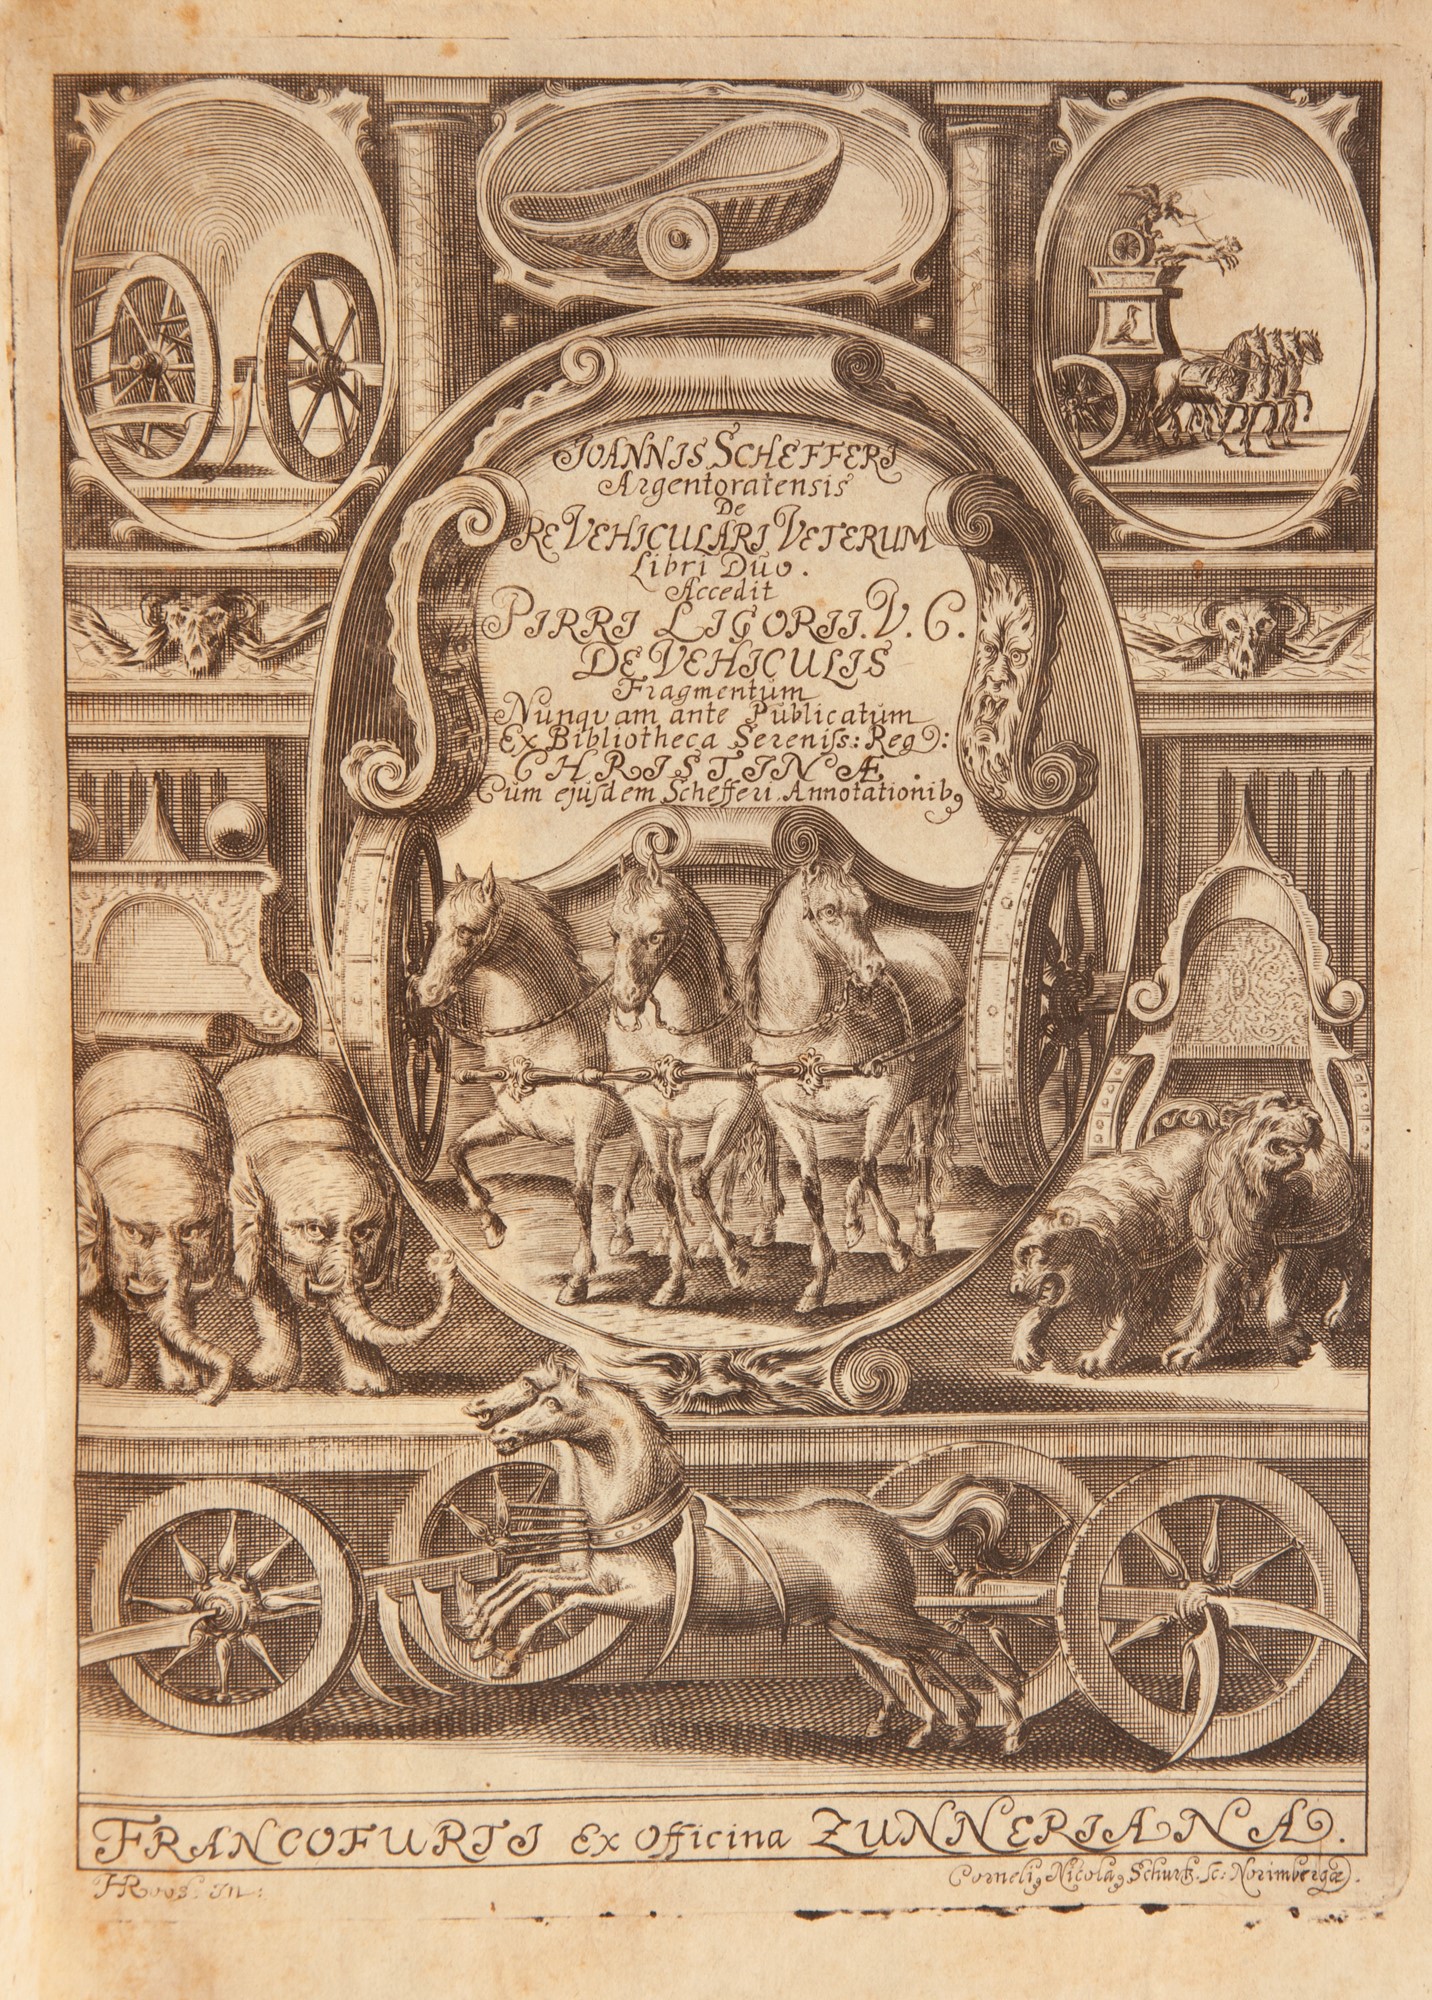 IOANNIS SCHEFFERI
Argentoratensis
De
RE VEHICULARI VETERUM
Libri Duo.
Accedit
PIRRI LIGORII. V. C.
DE VEHICULIS
Fragmentum
Nunquam ante Publicatum
Ex Bibliotheca Sereniss: Reg:
CHRISTINÆ.
Cum ejusdem Schefferi Annotationibꝰ
FRANCOFURTI Ex Officina ZUNNERIANA.
HRoos. In:
Corneliꝰ Nicolaꝰ Schurtz. sc: Norimbergæ.